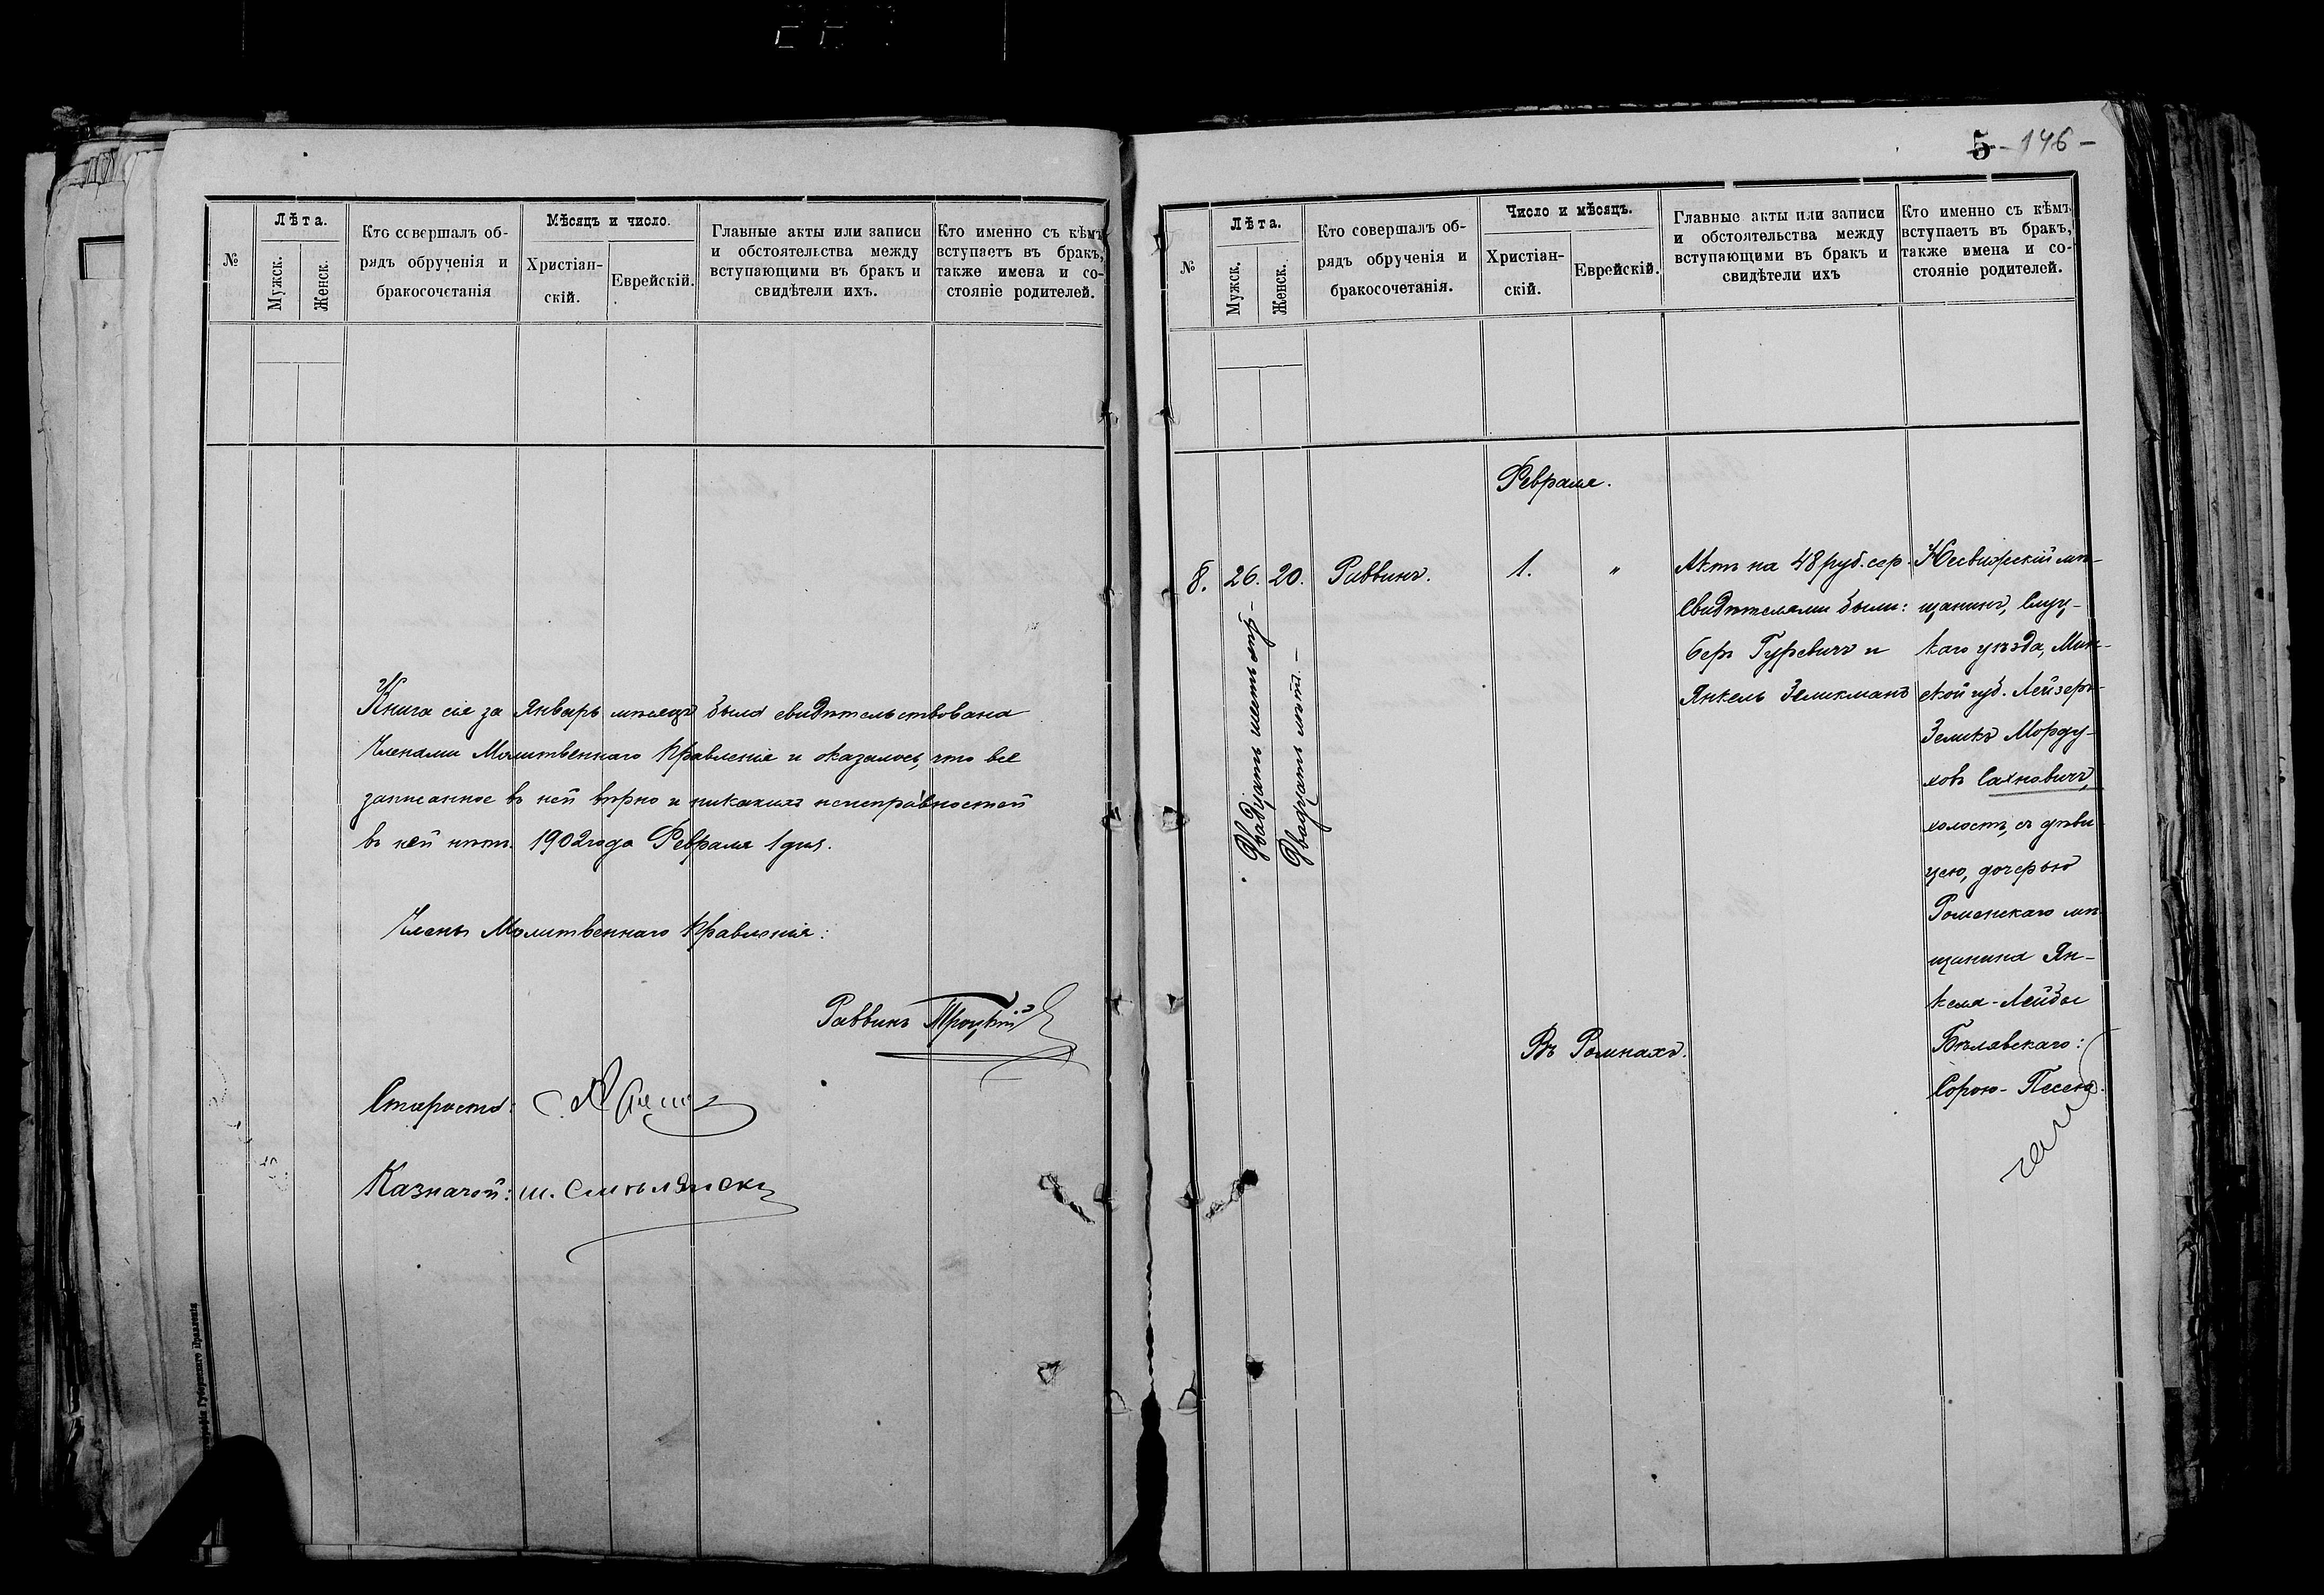 №
Лѣта.
Мужск.
Женск.
Кто совершалъ об-
рядъ обрученія и
бракосочетанія
Мѣсяцъ и число.
Христіан-
скій.
Еврейскій.
Главные акты или записи
и обстоятельства между
вступающими въ бракъ и
свидѣтели ихъ.
Кто именно съ кѣмъ
вступаетъ въ бракъ,
также имена и со-
стояніе родителей.
Книга сія за Январь мѣсяцъ была свидѣтельствована
Членами Молитвеннаго Правленія и оказалось, что все
записанное въ ней вѣрно и никакихъ неисправностей
въ ней нѣтъ. 1902 года Февраля 1 дня.
Члены Молитвеннаго Правленія:
Раввинъ Троцкій
Староста:
Казначей: Ш.
Губернскаго Правленія
5 - 146 -
№
Лѣта.
Мужск.
Женск.
Кто совершалъ об-
рядъ обрученія и
бракосочетанія.
Число и мѣсяцъ.
Христіан-
скій.
Еврейскій.
Главные акты или записи
и обстоятельства между
вступающими въ бракъ и
свидѣтели ихъ
Кто именно съ кѣмъ
вступаетъ въ бракъ,
также имена и со-
стояніе родителей.
Февраля.
8.
26.
Двадцать шесть лѣтъ
20.
Двадцать лѣтъ.
Раввинъ.
1.
"
Въ Ромнахъ.
Актъ на 48 руб. сер.
Свидѣтелями были:
Беръ Гуревичъ и
Янкель Зеликманъ
Несвижскій мѣ-
щанинъ, Слуц-
каго уѣзда, Мин-
ской губ. Лейзеръ-
Зеликъ Морду-
ховъ Сахновичъ,
холостъ, съ дѣви
цею, дочерью
Роменскаго мѣ
щанина Ян-
келя-Лейбы
Бѣлявскаго:
Сорою-Песею.